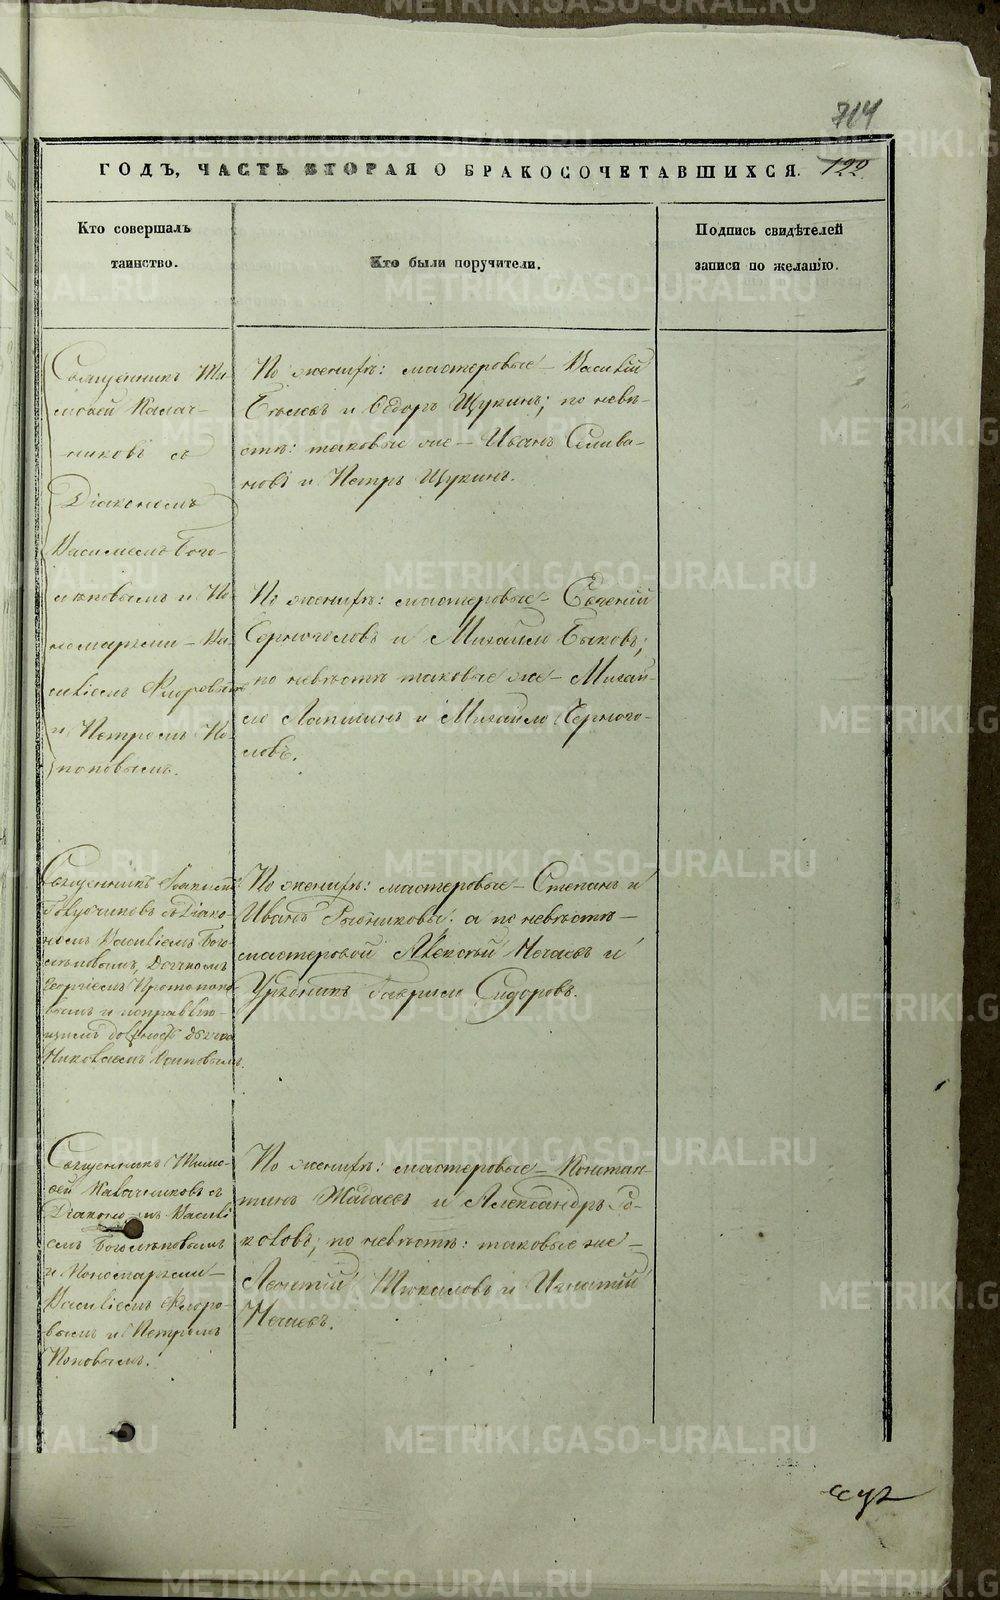 714
122
ГОДЪ, ЧАСТЬ ВТОРАЯ О БРАКОСОЧЕТАВШИХСЯ.
Кто совершалъ
таинство.
Кто были поручители.
Подпись свидѣтелей
записи по желанію.
Священникъ Ти-
моѳей Калач-
никовъ съ
Діакономъ
Василіемъ Бого-
лѣповымъ и По-
номарями – Ва-
силіемъ Флоровымъ
и Петромъ По-
повымъ.
По женихѣ: мастеровые – Василій
Бѣляевъ и Ѳедоръ Щукинъ; по невѣ-
стѣ: таковые же – Иванъ Селива-
новъ и Петръ Щукинъ.
По женихѣ: мастеровые – Евгеній
Черноголовъ и Михайло Быковъ;
по невѣстѣ таковые же – Михай-
ло Лапшинъ и Михайло Черного-
ловъ.
Священникъ
съ Діако-
номъ Василіемъ Бого-
лѣповымъ, Дьячкомъ
Георгіемъ Протопопо-
вымъ и исправляю-
щимъ должность дьячка
Николаемъ Поповымъ.
По женихѣ: мастеровые – Степанъ и
Иванъ Рыбниковы: а по невѣстѣ –
мастеровой Алексѣй Нечаевъ и
Урядникъ Гаврило Сидоровъ.
Священникъ Тимо-
ѳей Калачниковъ съ
Діакономъ Василі-
емъ Боголѣповымъ
и Пономарями –
Василіемъ Флоро-
вымъ и Петромъ
Поповымъ.
По женихѣ: мастеровые – Констан-
тинъ Жадаевъ и Александръ
по невѣстѣ: таковые же –
Леонтій Тюкаловъ и Игнатій
Нечаевъ.
METRIKI.GASO-URAL.RU